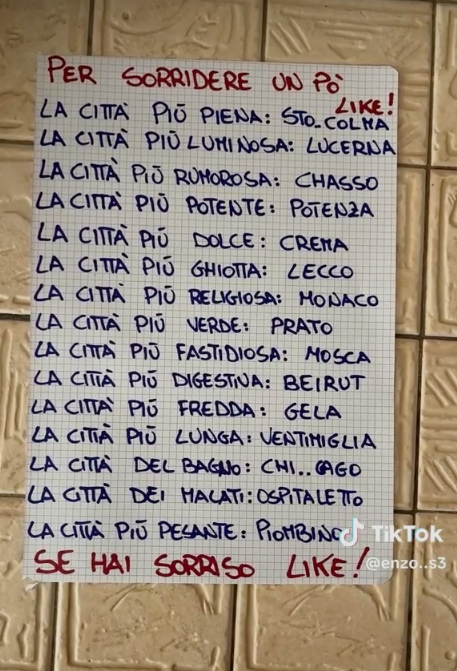 PER SORRIDERE UN PÒ
LIKE!
LA CITTÀ PIÙ PIENA: STO..COLMA
LA CITTÀ PIÙ LUMINOSA: LUCERNA
LA CITTÀ PIÙ RUMOROSA: CHASSO
LA CITTÀ PIÙ POTENTE: POTENZA
LA CITTÀ PIÙ DOLCE: CREMA
LA CITTÀ PIÙ GHIOTTA: LECCO
LA CITTÀ PIÙ RELIGIOSA: MONACO
LA CITTÀ PIÙ VERDE: PRATO
LA CITTÀ PIÙ FASTIDIOSA: MOSCA
LA CITTÀ PIÙ DIGESTIVA: BEIRUT
LA CITTÀ PIÙ FREDDA: GELA
LA CITTÀ PIÙ LUNGA: VENTIMIGLIA
LA CITTÀ DEL BAGNO: CHI..CAGO
LA CITTÀ DEI MALATI: OSPITALETTO
LA CITTÀ PIÙ PESANTE: PIOMBINO
TikTok
@enzo..s3
SE HAI SORRISO LIKE!